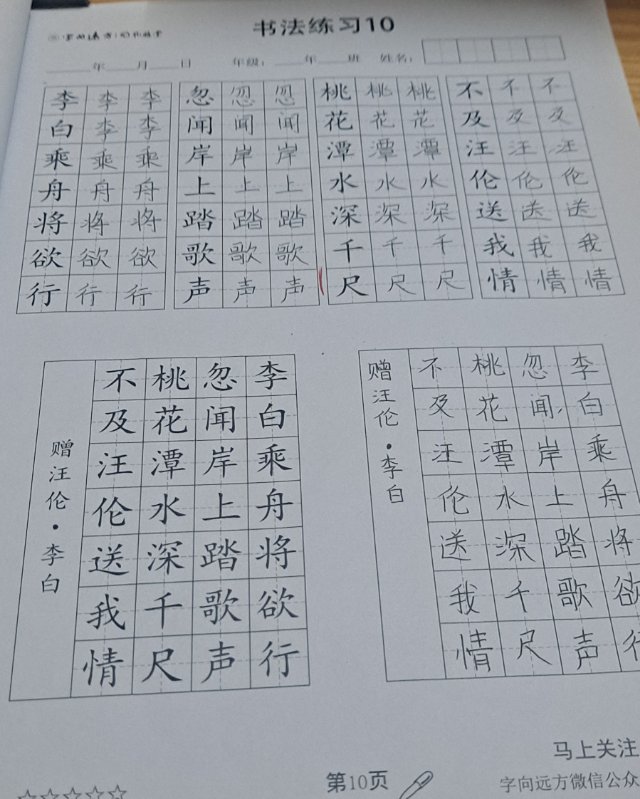 书法练习10
年 月 日 年级: 年 班 姓名:
李白乘舟将欲行
李李乘舟将欲行
李李乘舟将欲行
忽闻岸上踏歌声
忽闻岸上踏歌声
忽闻岸上踏歌声
桃花潭水深千尺
桃花潭水深千尺
桃花潭水深千尺
不及汪伦送我情
不及汪伦送我情
不及汪伦送我情
赠汪伦·李白
李白乘舟将欲行
忽闻岸上踏歌声
桃花潭水深千尺
不及汪伦送我情
赠汪伦·李白
李白乘舟将欲行
忽闻岸上踏歌声
桃花潭水深千尺
不及汪伦送我情
第10页
马上关注
字向远方微信公众